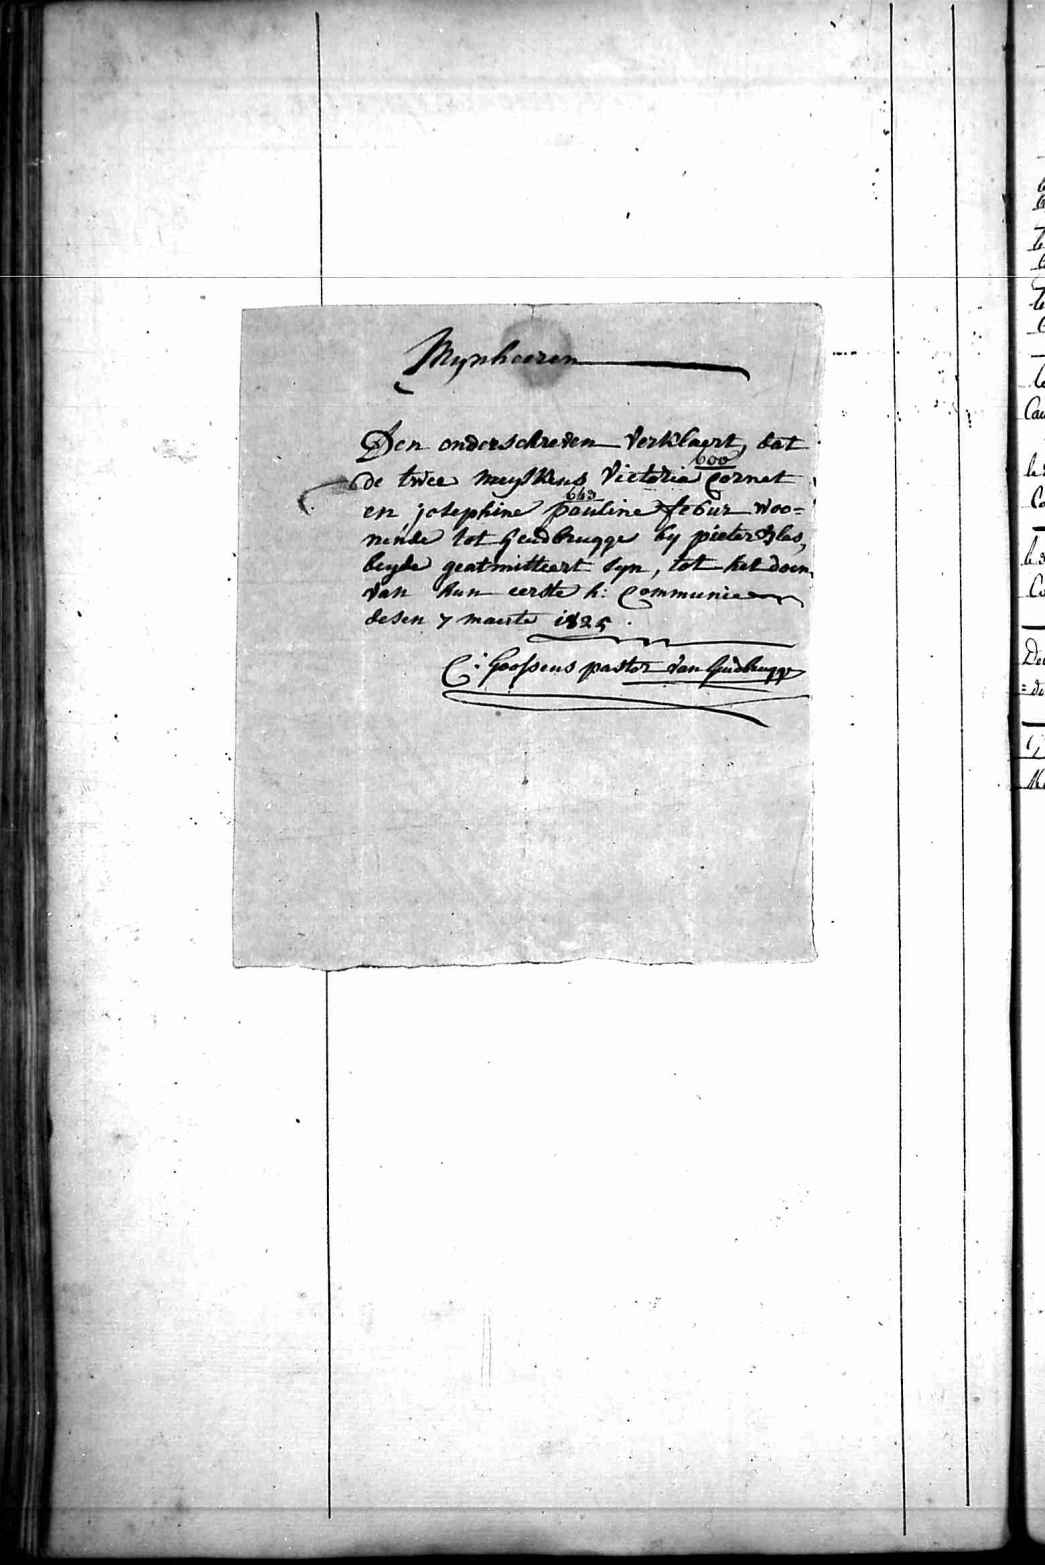 Mynheeren
Den onderschreven verklaert, dat
600
de twee meyskens Victoria Cornet
643
en josephine pauline febur woo=
nende tot Gendbrugge by pieter
beyde geatmitteert syn, tot het doen
van hun eerste h: Communie
desen 7 maerte 1825.
C: Goossens pastor van Gendbrugge